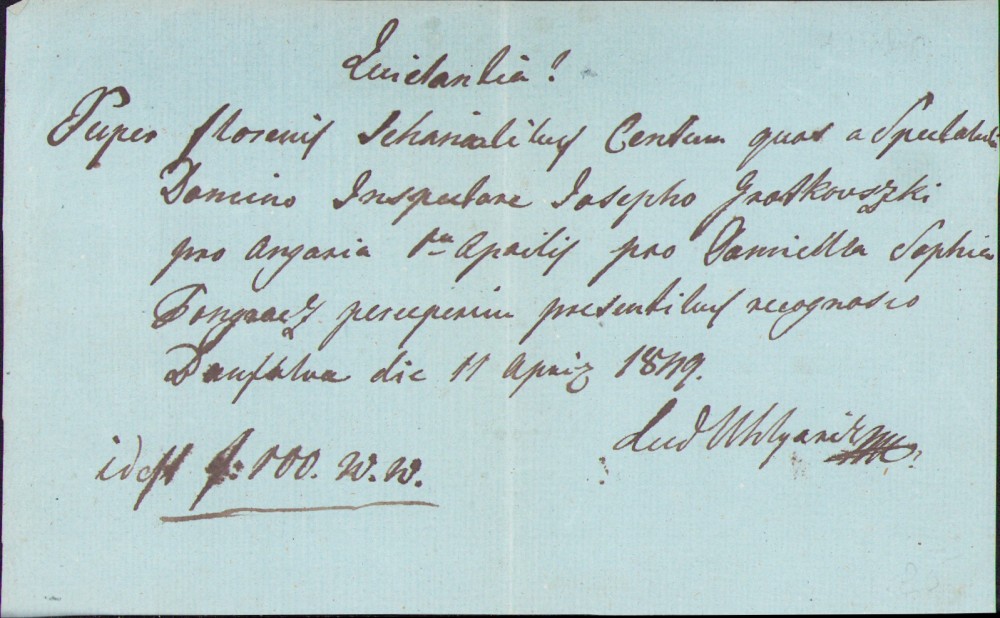 Quietantia!
Super florenis Schainalibus Centum quos a Spectabili
Domino Inspectore Josepho Gratkovszki
pro Angaria 1ma Aprilis pro Domicella Sophia
Pongracz perceperim presentibus recognosco
die 11 April 1849.
Lud Uhlyarik mp.
id est f: 100. W. W.